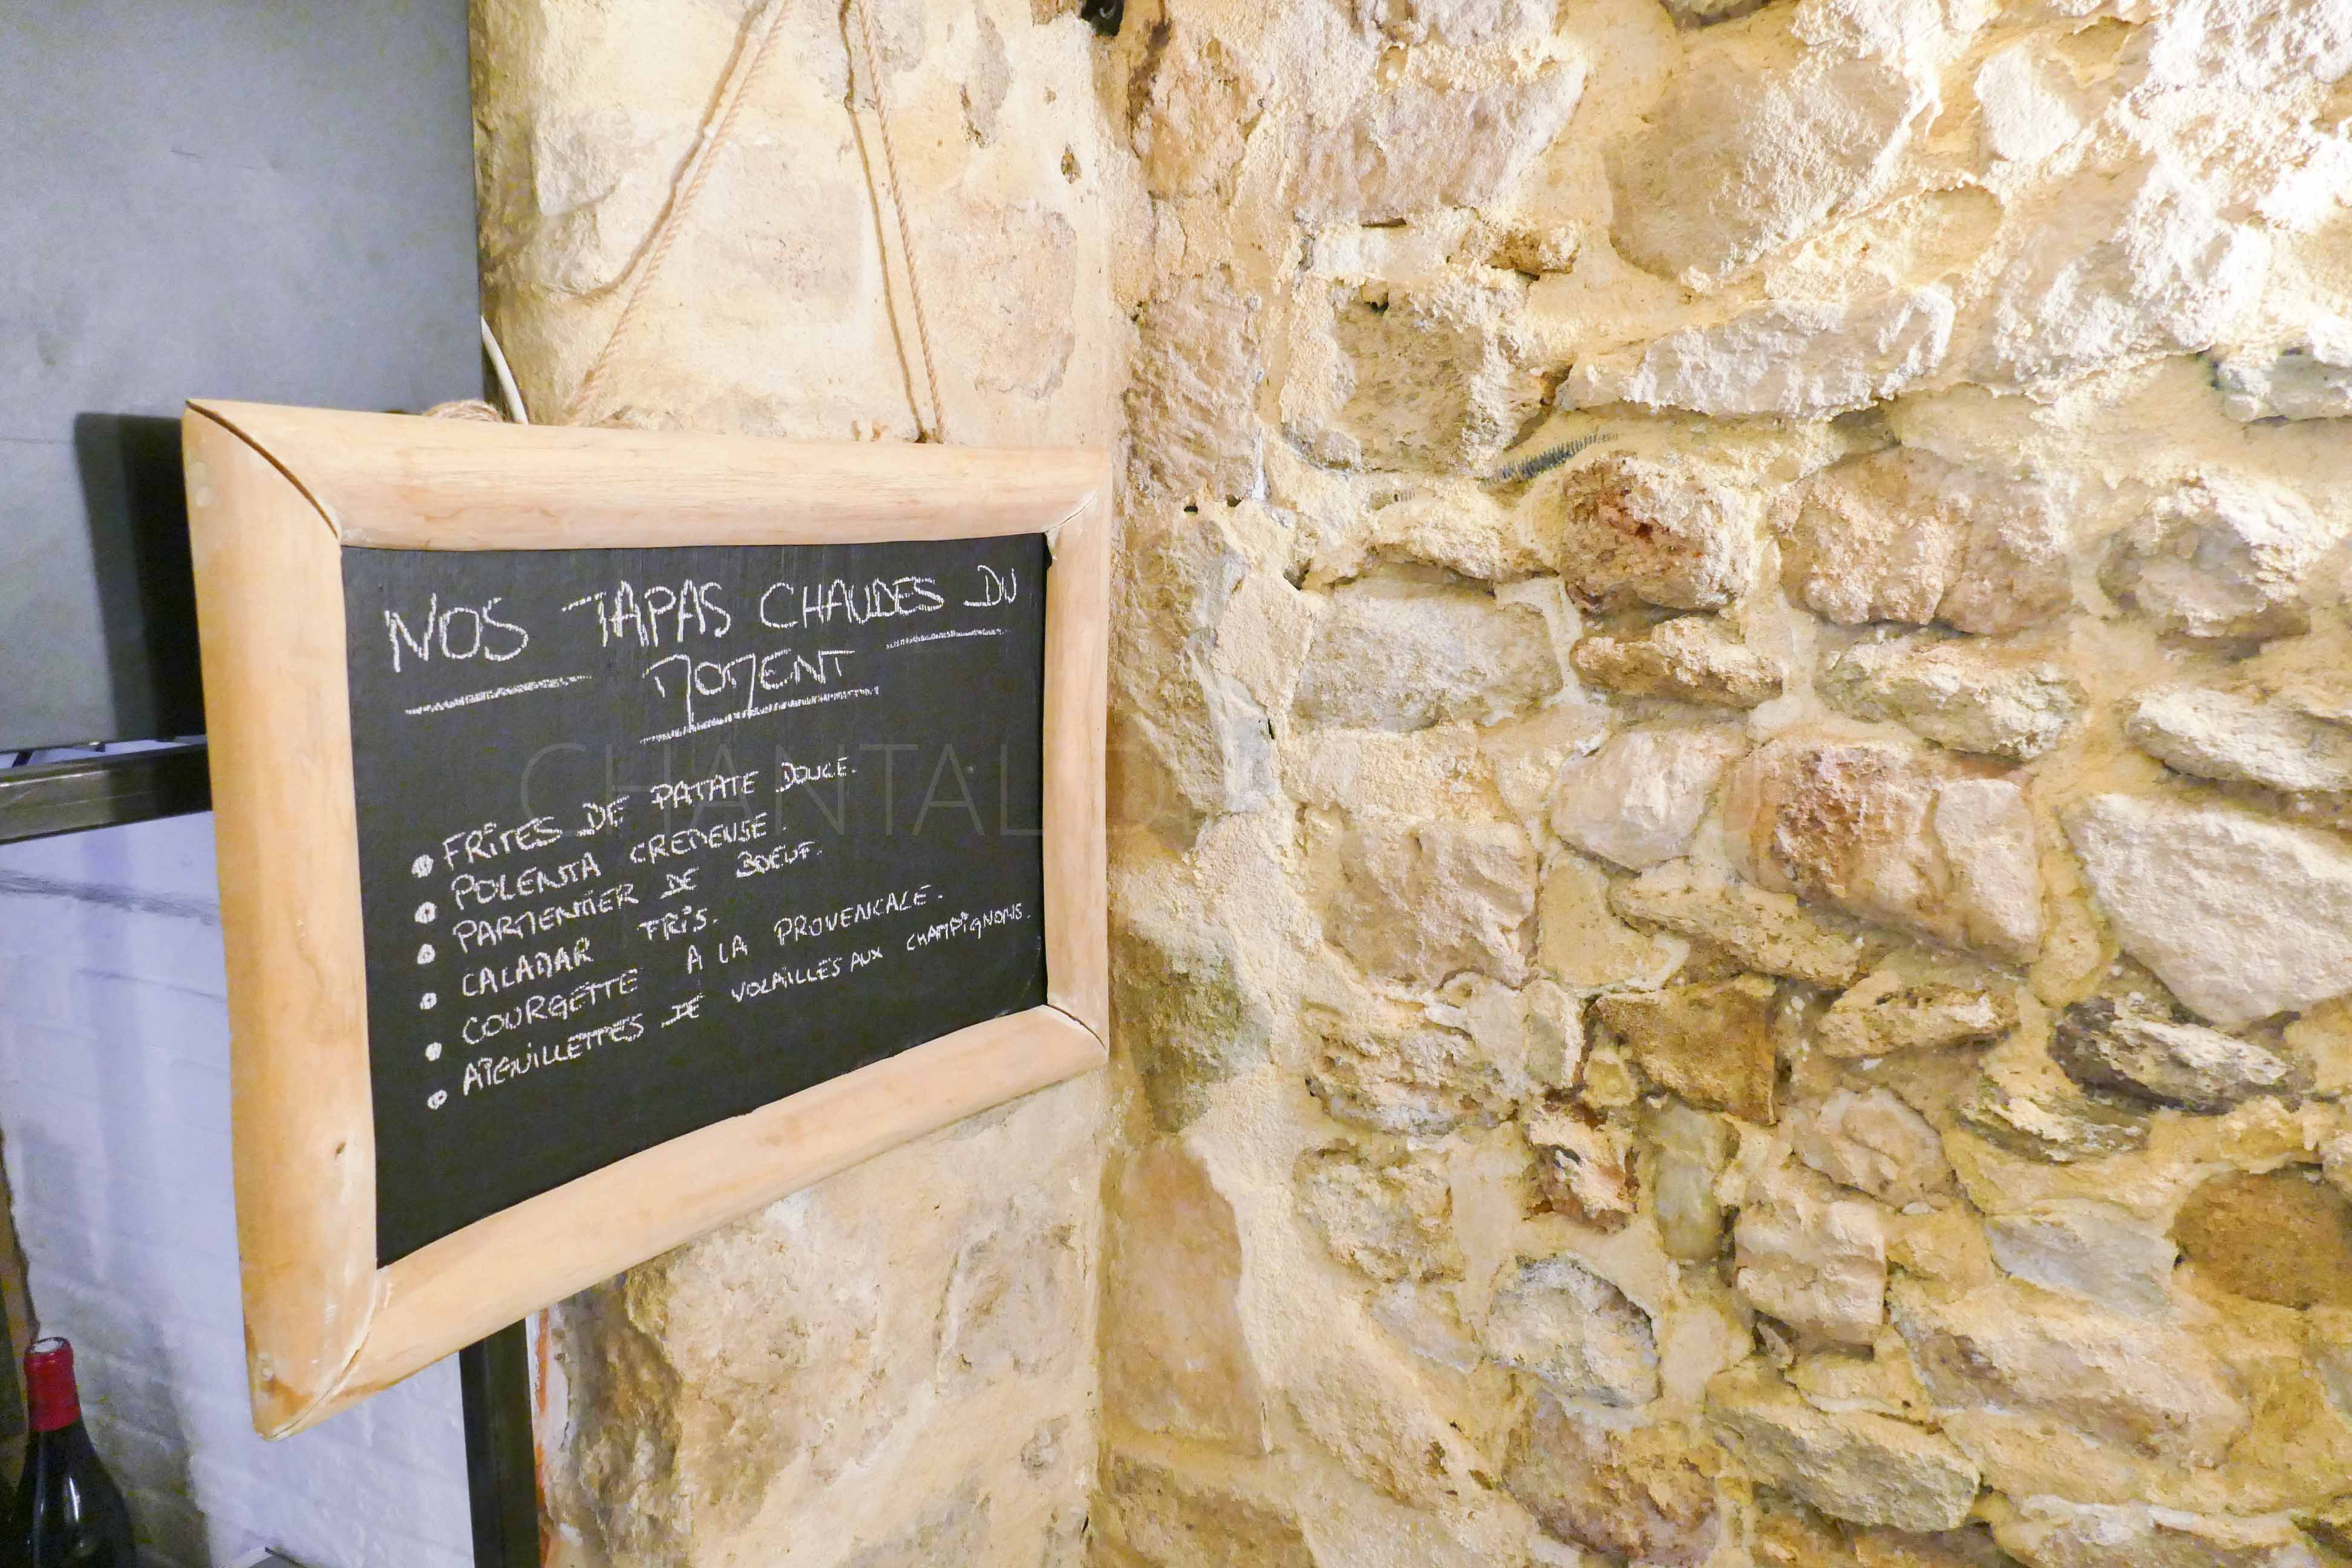 NOS TAPAS CHAUDES DU
MOMENT
• FRITES DE PATATE DOUCE.
• POLENTA CREMEUSE.
• PARMENTIER DE BOEUF.
• CALAMAR FRIS.
• COURGETTE A LA PROVENCALE.
• AIGUILLETTES DE VOLAILLES AUX CHAMPIGNONS.
CHANTAL